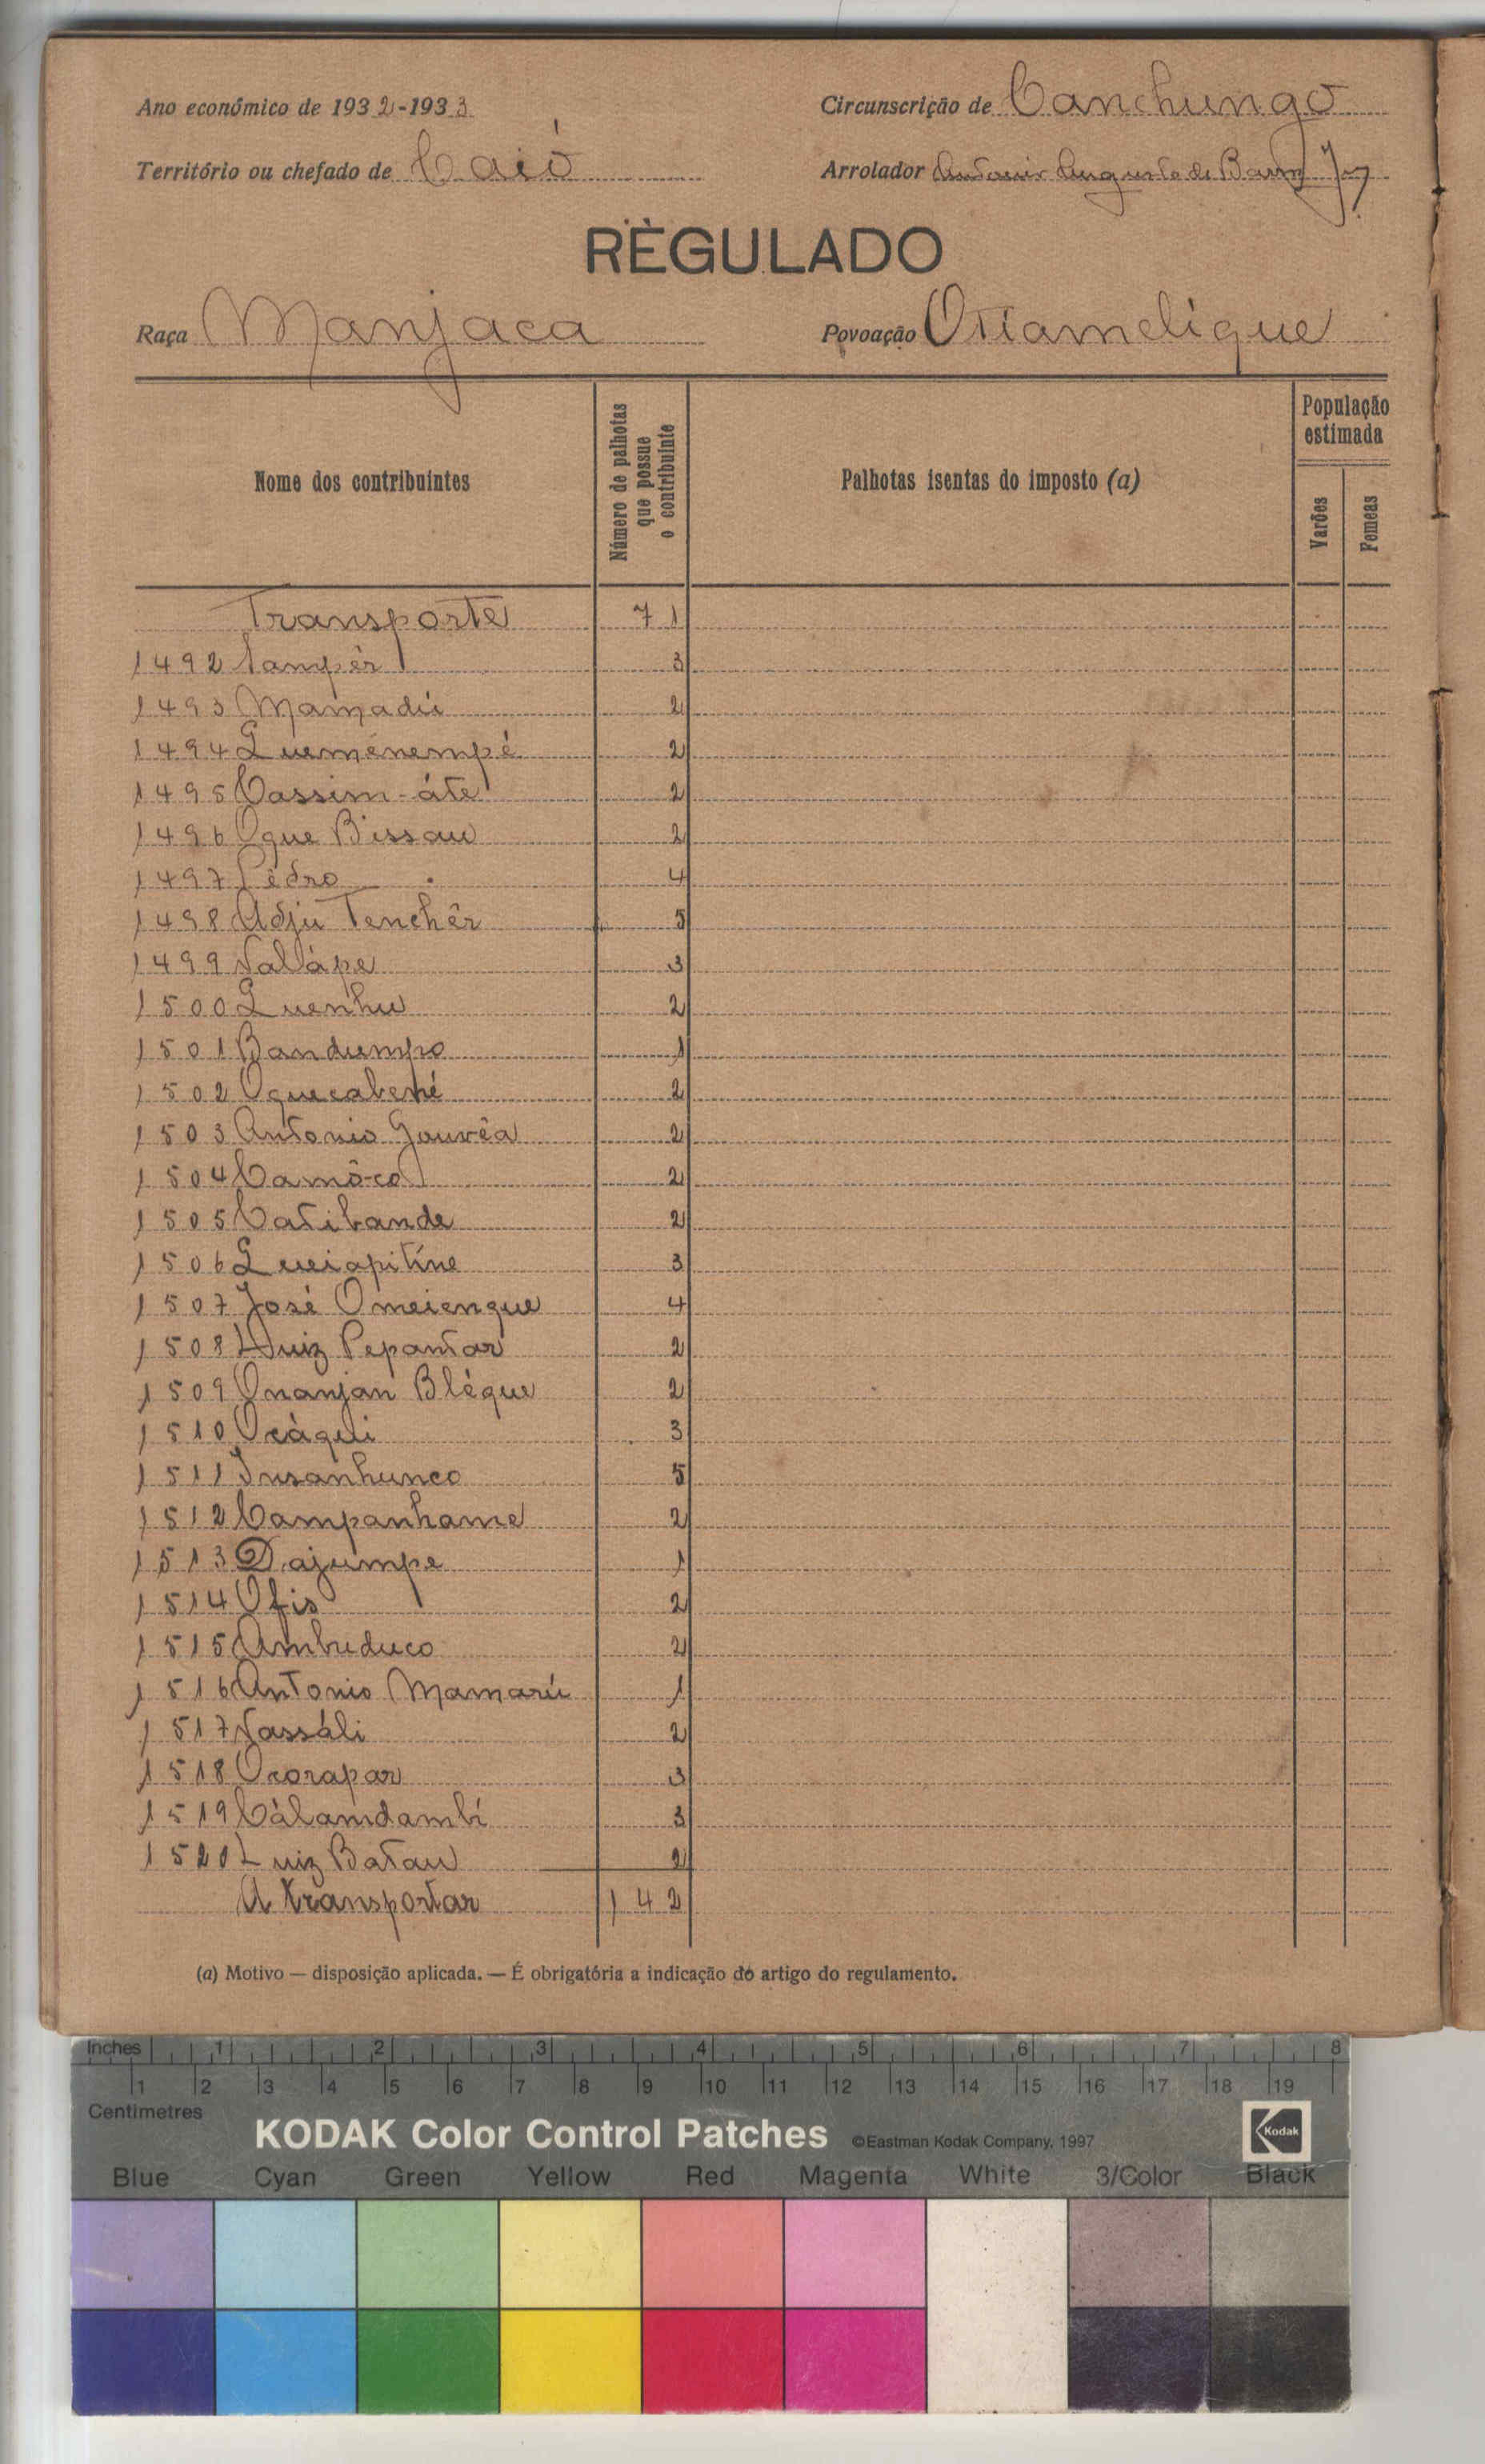 Ano económico de 1932-1933 Circunscrição de Canchungo
Território ou chefado de Caió Arrolador Antonio Augusto de Barros Jor
REGULADO
Raça Manjaca Povoação Otiameligue
Nome dos contribuintes Número de palhotas que possue o contribuinte Palhotas isentas do imposto (a) População estimada Varões Femeas
Transporte 71
1492 Nampêr 3
1493 Mamadú 2
1494 Queménempé 2
1495 Cassim-áte 2
1496 Ogue Bissau 2
1497 Pêdro 4
1498 Adju Tenchêr 5
1499 Nalápe 3
1500 Quenhu 2
1501 Bandumpo 1
1502 Oquecabené 2
1503 Antonio Gouvêa 2
1504 Camô-co 2
1505 Catibande 2
1506 Queiapitíne 3
1507 José Omeiengue 4
1508 Luiz Pepantar 2
1509 Onanjan Bléque 2
1510 Ocàqui 3
1511 Insanhunco 5
1512 Campanhame 2
1513 Dajumpe 1
1514 Ofis 2
1515 Ambuduco 2
1516 Antonio Mamarú 1
1517 Nassáli 2
1518 Ocorapar 3
1519 Càlamdambí 3
1520 Luiz Batau 2
A transportar 142
(a) Motivo — disposição aplicada. — É obrigatória a indicação do artigo do regulamento.
Inches 1 2 3 4 5 6 7 8
1 2 3 4 5 6 7 8 9 10 11 12 13 14 15 16 17 18 19
Centimetres
KODAK Color Control Patches ©Eastman Kodak Company, 1997 Kodak
Blue Cyan Green Yellow Red Magenta White 3/Color Black